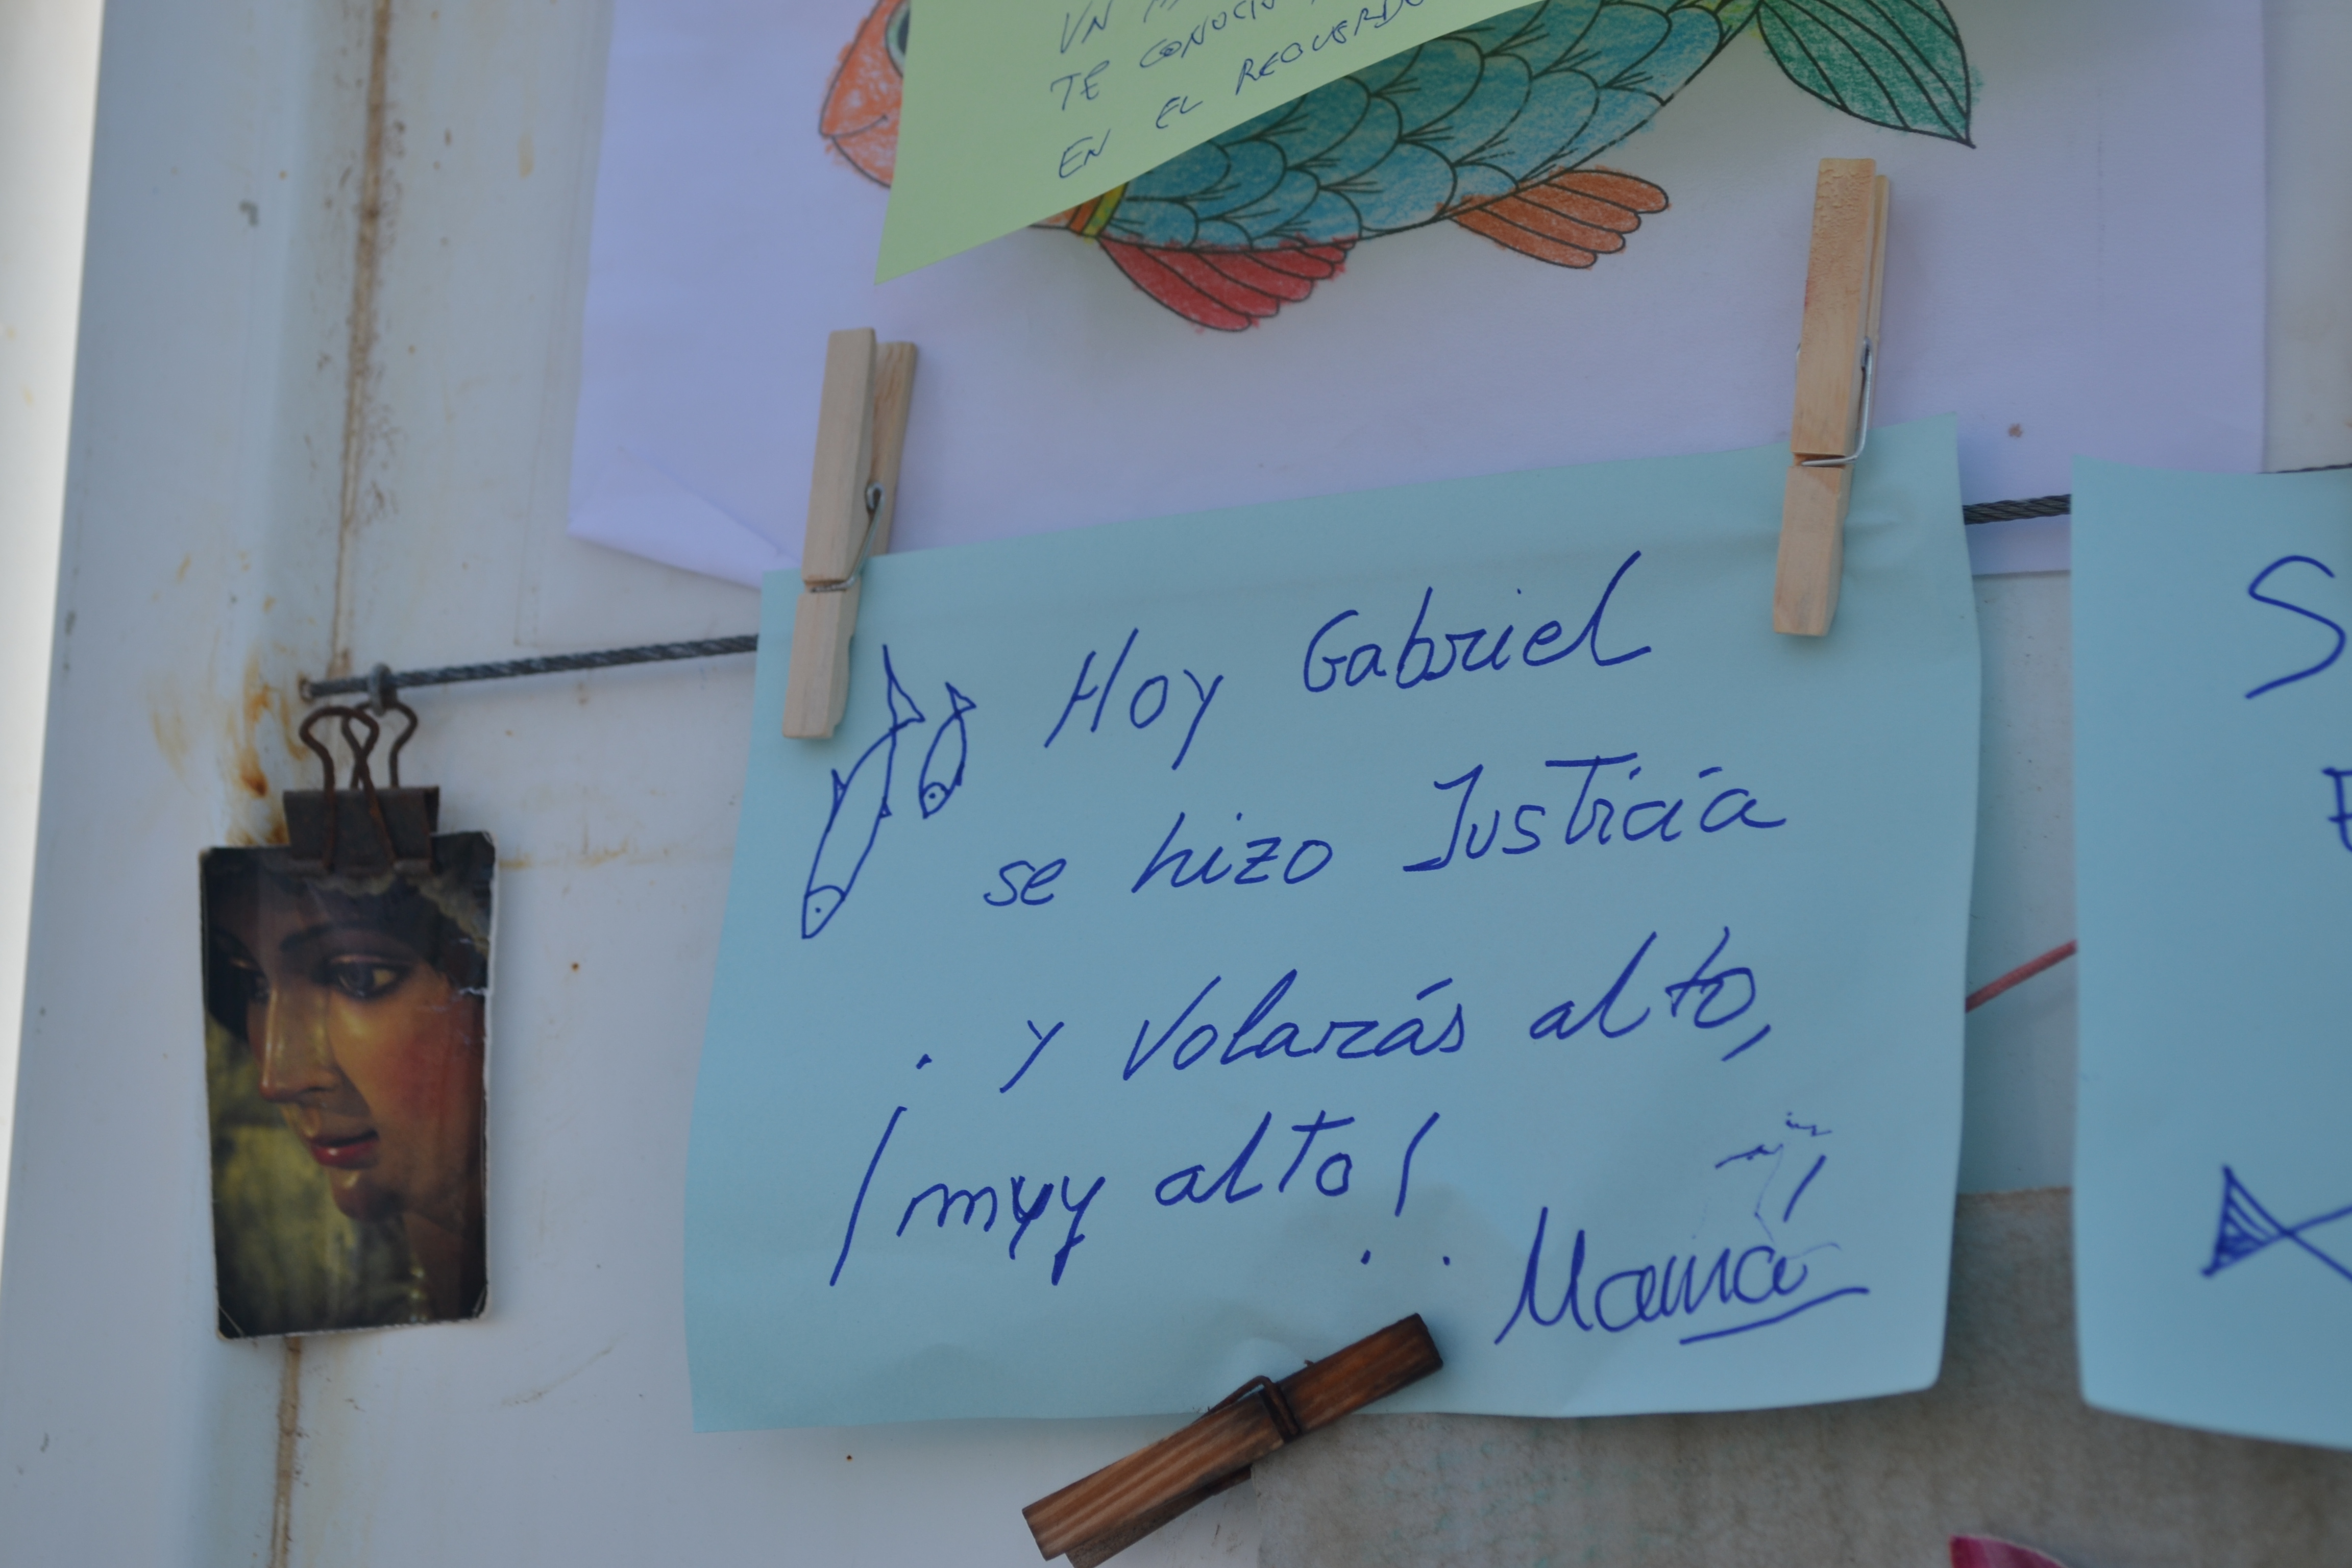 UN
TE CONOCIÓ
EN EL RECUERDO
Hoy Gabriel
se hizo Justicia
. y Volarás alto,
¡muy alto!
Mamá
S